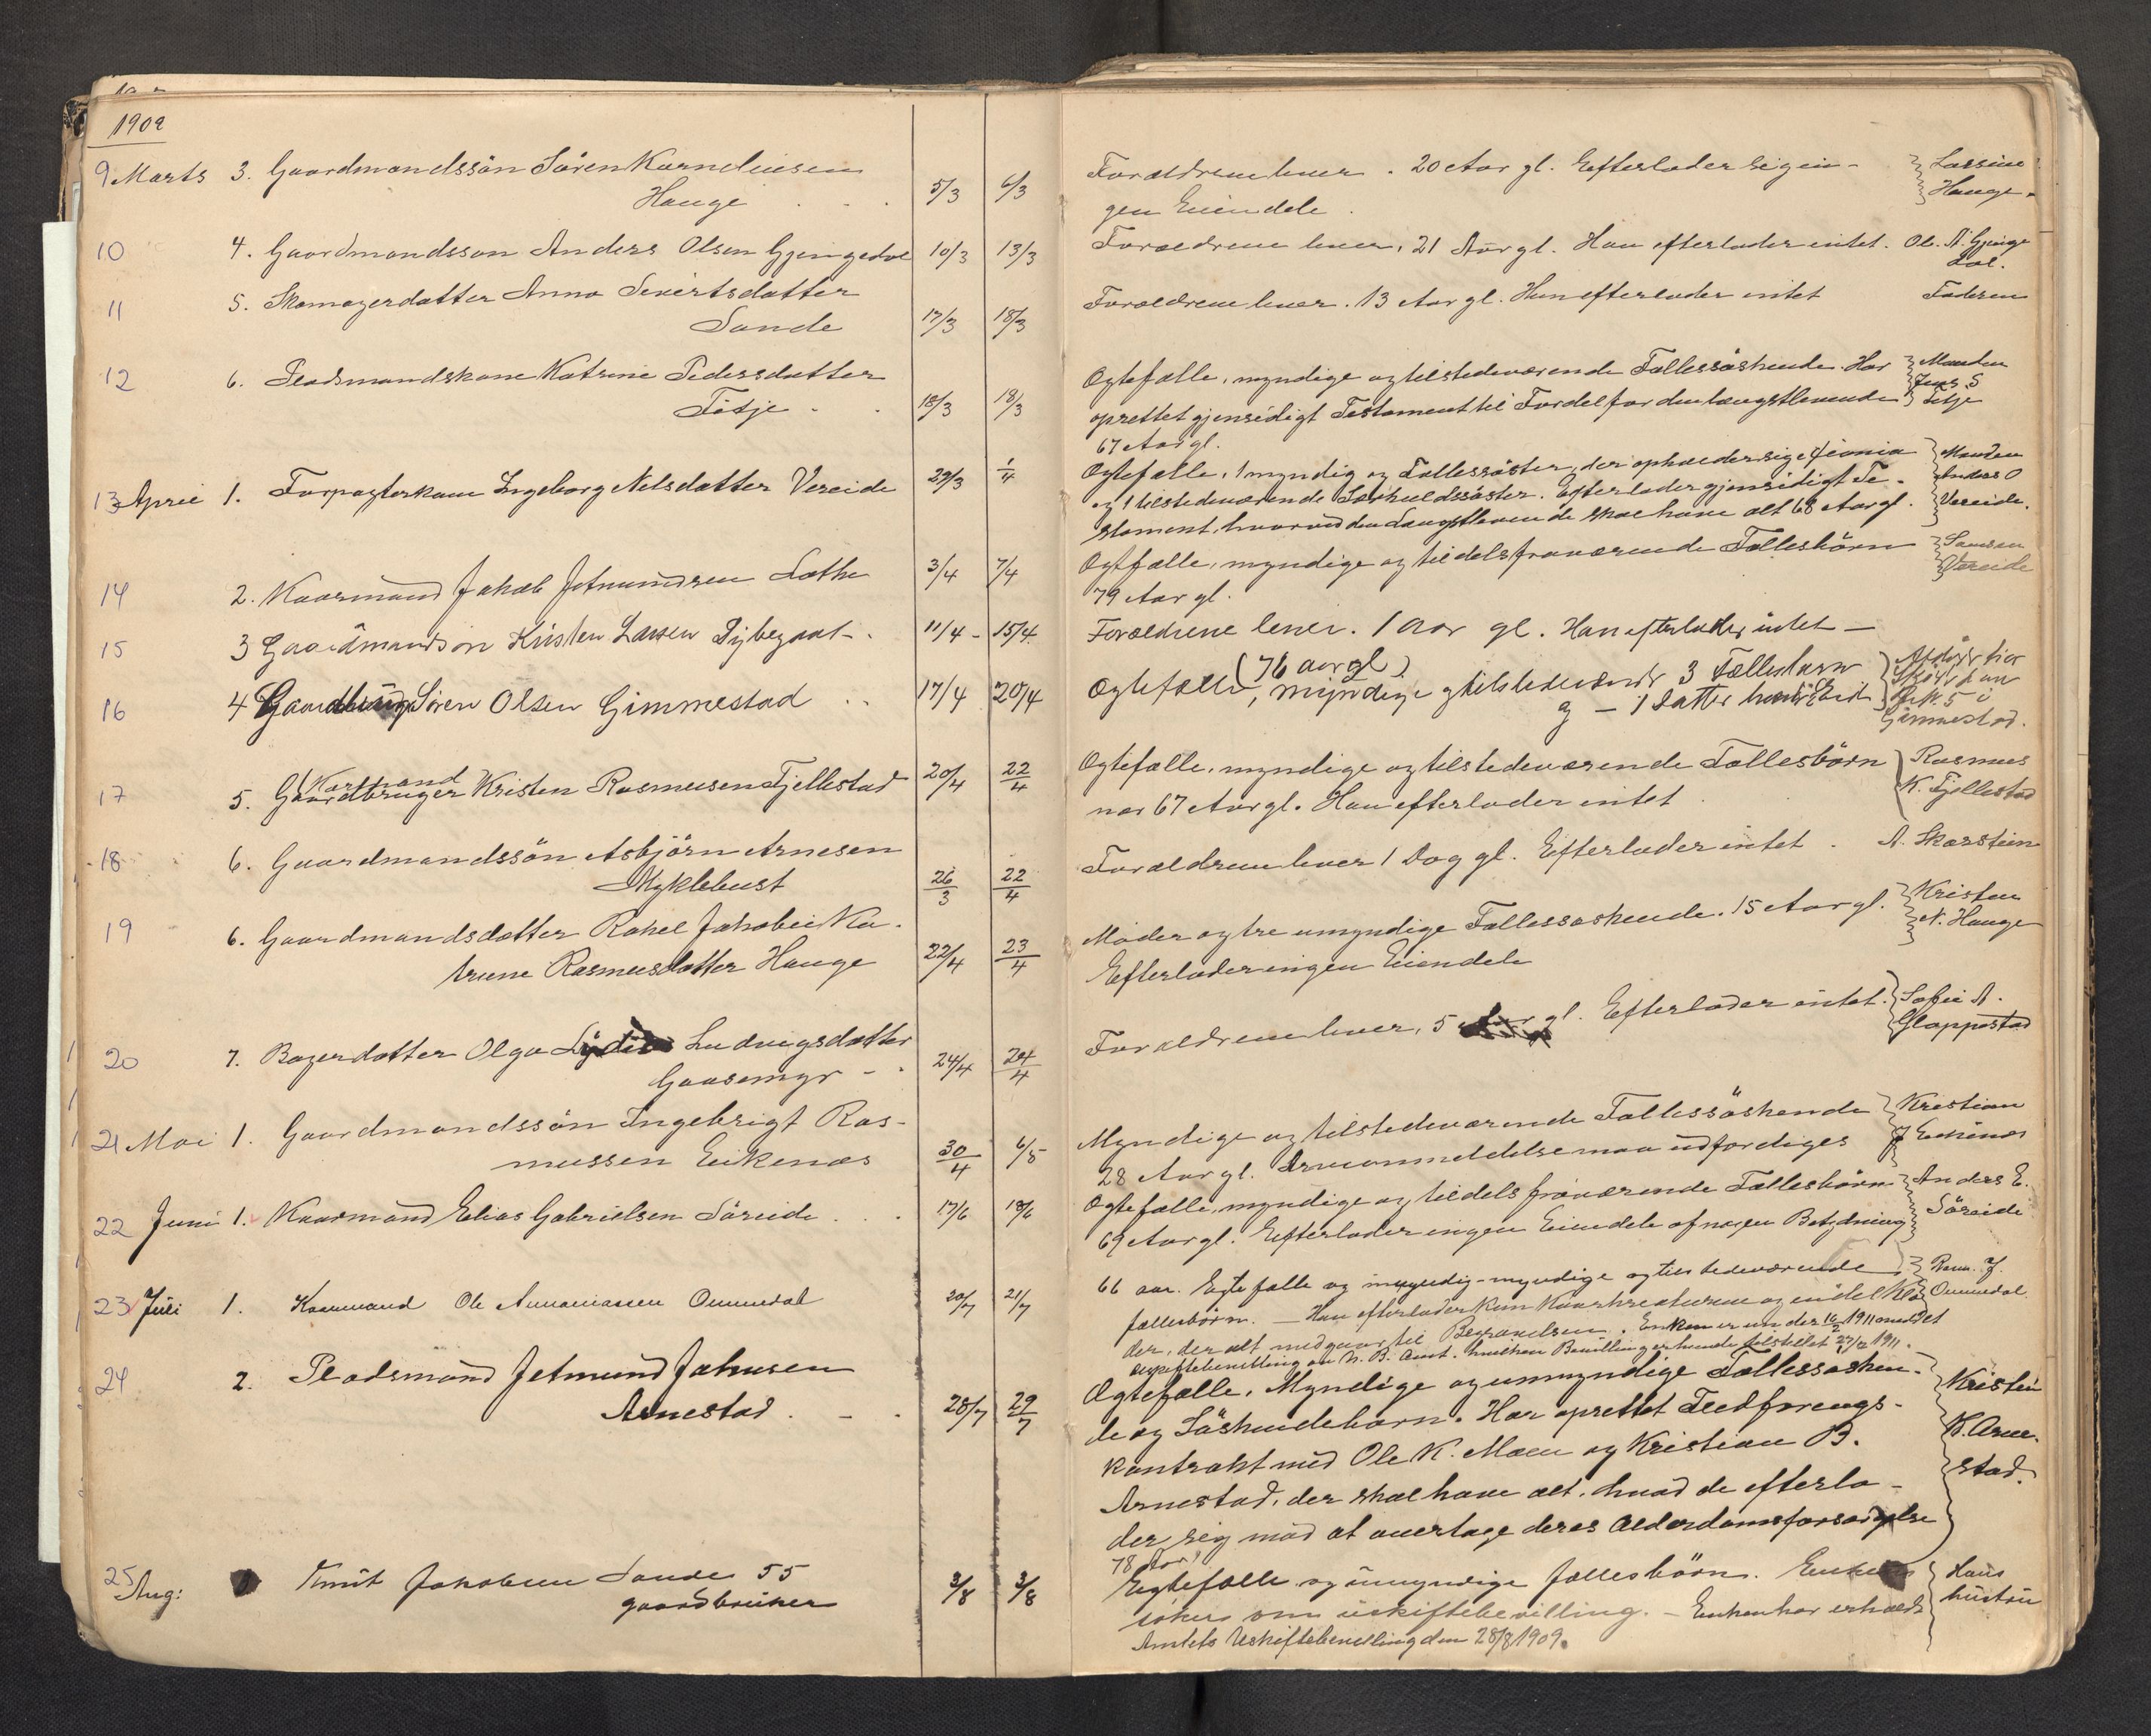 1909
9 Marts 3. Gaardmandssön Sören Korneliussen 5/3 6/3 Forældrene lever. 20 Aar gl. Efterlader sig in- Lassine
Hauge gen Eiendele. Hauge.
10 4. Gaardmandsson Anders Olsen Gjengedal 10/3 13/3 Forældrene lever, 21 Aar gl. Han efterlader intet. Ole A. Gjenge
dal.
11 5. Skomagerdatter Anna Sivertsdatter Forældrene lever. 13 Aar gl. Hun efterlader intet Faderen
Sande 17/3 18/3
12 6. Pladsmandskone Katrine Pedersdatter Ogtefælle, myndige og tilstedeværende Fællessöskende. Har Manden
Titje 18/3 18/3 oprettet gjensidigt Testament til Fordel for den længstlevende Jens S
Titje
67 Aar gl.
13 April 1. Forpagterkone Ingeborg Nilsdatter Vereide 29/3 1/4 Ogtefælle, 1 myndig og Fællessöster, der opholder sig i Manden
og 1 tilstedeværende Særkuldssöster. Efterlader gjensidigt Te- Anders O
stament, hvorved den Længstlevende skal have alt 68 Aar gl. Vereide.
14 2. Kaarmand Jakob Jetmundsen Lothe 3/4 7/4 Ogtfælle, myndige og tildels fraværende Fællesbörn
Vereide
79 Aar gl.
15 3 Gaardmandsön Kristen Larsen Dybegaat 11/4 15/4 Forældrene lever. 1 aar gl. Han efterlader intet —
(76 aar gl)
16 4 Gaardbrug. Sören Olsen Gimmestad 17/4 20/4 Ægtefælle, myndige og tilstedeværende 3 Fællesbarn
og — 1 datter
Gimmestad.
Kaarmand
17 5. Gaardbruger Kristen Rasmussen Fjellestad 20/4 22/4 Ogtefælle, myndige og tilstedeværende Fællesbörn Rasmus
var 67 Aar gl. Han efterlader intet K. Fjellestad
18 6. Gaardmandssön Asbjörn Arnesen Forældrene lever 1 Dag gl. Efterlader intet. A. Skarstein
Myklebust 26/3 22/4
19 6. Gaardmandsdatter Rakel Jakobie Ka- Moder og tre umyndige Fællessoskende. 15 Aar gl. Kristen
trine Rasmusdatter Hauge 22/4 23/4 Efterlader ingen Eiendele N. Hauge
20 7. Bagerdatter Olga Lydia Ludvigsdatter Forældrene lever, 5 gl. Efterlader intet. Sofie A.
Gaasemyr 24/4 24/4 Gloppestad
21 Mai 1. Gaardmandssön Ingebrigt Ras- Myndige og tilstedeværende Fællessöskende Kristian
mussen Eikenæs 30/4 6/5 28 Aar gl. Arveanmeldelse maa udfærdiges J Eikenæs
22 Juni 1. Kaarmand Elias Gabrielsen Söreide 17/6 18/6 Ogtefælle, myndige og tildels fraværende Fællesbörn Anders E.
69 Aar gl. Efterlader ingen Eiendele af nogen Betydning Söreide
23 Juli 1. Kaarmand Ole Annaniassen Ommedal 20/7 21/7 66 aar. Egtefælle og myndige og tilstedeværende Rasm. J.
fællesbörn. — Han efterlader kun Kaarkreaturene og endel Klæ Ommedal.
der, der alt medgaar til Begravelsen. Enken er under 16/2 1911 meddelt
uskiftebevilling av N. B. Amt. hvilken Bevilling er hende tilstillet 27/2 1911.
24 2. Pladsmand Jetmund Johnsen Ægtefælle, Myndige og umyndige Fællessosken-
Arnestad 28/7 29/7 de og Söskendebarn. Har oprettet Födforengs- Kristen
kontrakt med Ole K. Moen og Kristian B. K. Arne-
Arnestad, der skal have alt, hvad de efterla- stad.
der sig mod at overtage deres Alderdomsforsørgelse
78 Aar
25 Aug: Knut Jakobsen Sande 55 3/8 3/8 Egtefælle og umyndige fællesbörn. Enken Hans
gaardbruker söker om uskiftebevilling. — Enken har erholdt hustru
Amtets Uskiftebevilling den 28/8 1909.